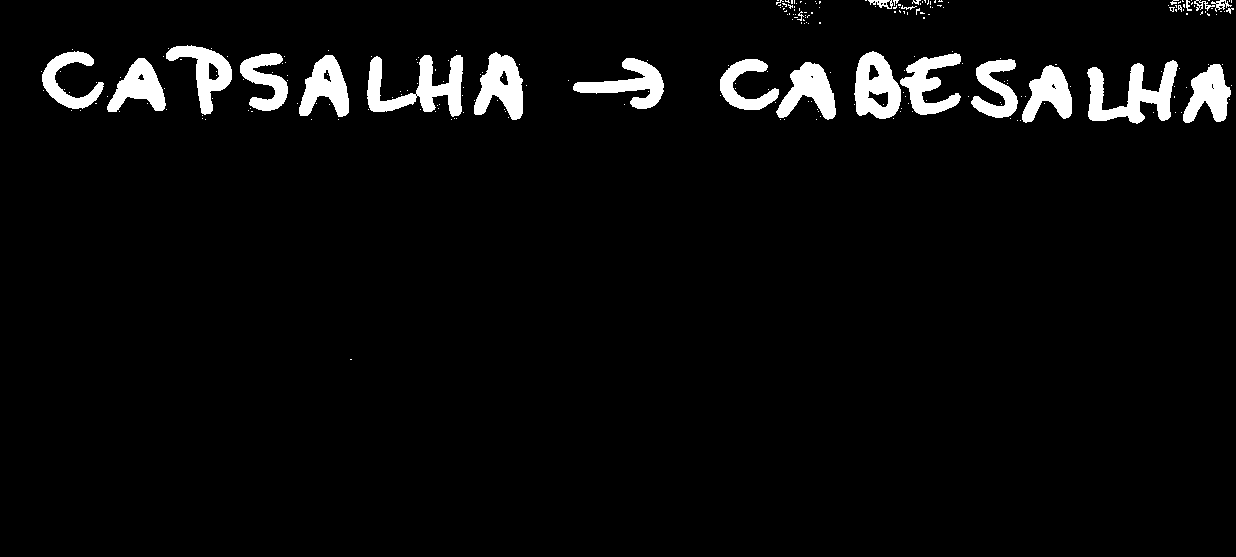 CAPSALHA → CABESALHA